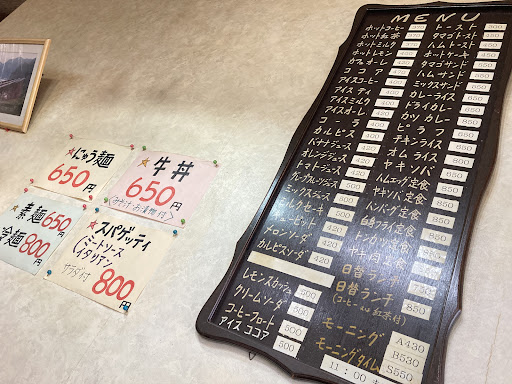 MENU
ホットコーヒー 370
ホット紅茶 370
ホットミルク 370
ホットレモン 420
カフェオーレ 420
ココア 420
アイスコーヒー
アイスティ 420
アイスミルク
アイスオーレ
コーラ
カルピス
バナナジュース
オレンジジュース
トマトジュース
ミックスジュース
ミルクセーキ
メロンソーダ 420
カルピスソーダ 420
レモンスカッシュ 500
クリームソーダ 500
コーヒーフロート 500
アイスココア 500
トースト 300
タマゴトースト 450
ハムトースト 450
ホットケーキ 450
タマゴサンド 550
ハムサンド
ミックスサンド
カレーライス 650
ドライカレー 650
カツカレー 850
ピラフ
チキンライス
オムライス
ヤキソバ
ハムエッグ定食
ヤキソバ定食 850
ハンバーグ定食 850
白身フライ定食
トンカツ定食
ヤキ肉定食
日替ランチ 750
日替ランチ 850
(コーヒー又は紅茶付)
モーニング A430
モーニングタイム B530
S550
11:00
☆にゅう麺
650円
☆牛丼
650円
(みそ汁・お漬物付)
素麺 650円
冷麺 800円
☆スパゲッティ
(ミートソース
イタリアン
サラダ付
800円